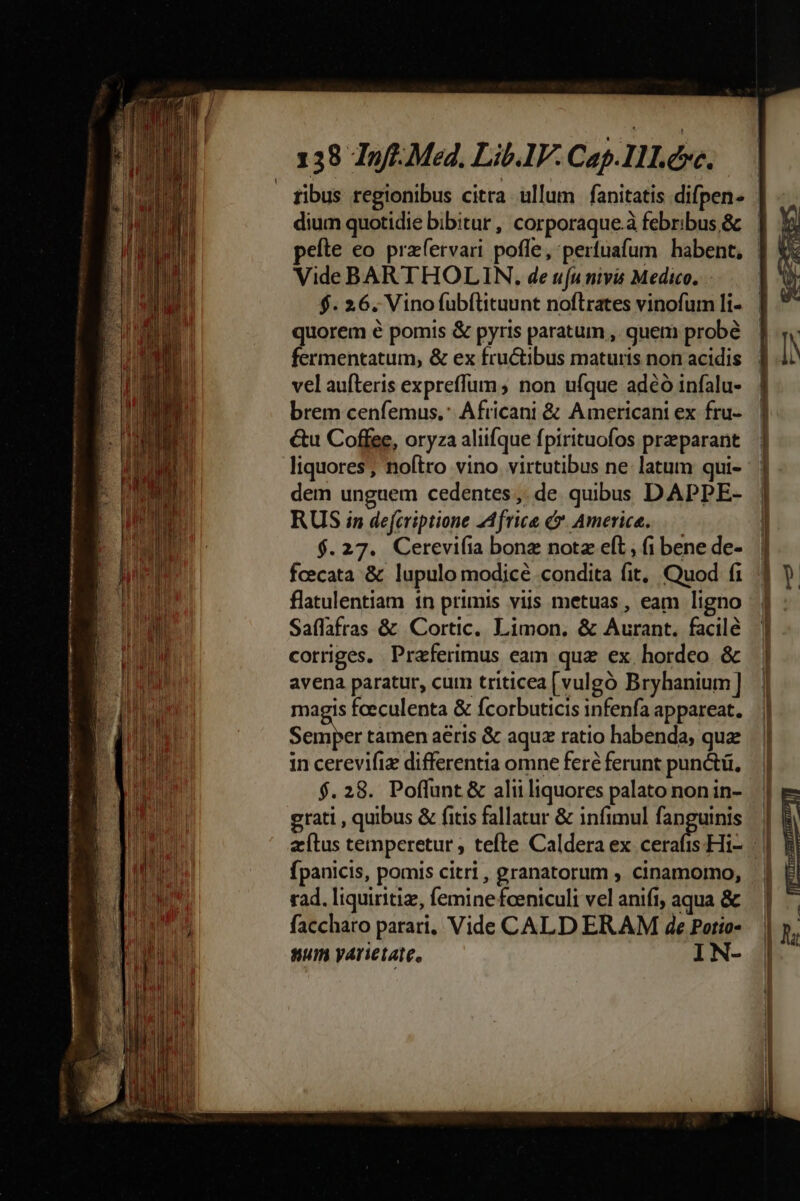 138 Inſt. Med. Lib.IV. Cap.III.&c.
ribus regionibus citra ullum ſanitatis diſpen-
dium quotidie bibitur, corporaque à febribus &
peſte eo præſervari poſſe, perſuaſum habent,
Vide BARTHOLIN. de uſu nivis Medico.
§. 26. Vino ſubſtituunt noſtrates vinoſum li-
quorem è pomis & pyris paratum, quem probè
fermentatum, & ex fructibus maturis non acidis
vel auſteris expreſſum, non uſque adèò inſalu-
brem cenſemus. Africani & Americani ex fru-
ctu Coffee, oryza aliiſque ſpirituoſos præparant
liquores, noſtro vino virtutibus ne latum qui-
dem unguem cedentes, de quibus DAPPE-
RUS in deſcriptione Africæ & Americæ.
§. 27. Cereviſia bonæ notæ eſt, ſi bene de-
fœcata & lupulo modicè condita ſit. Quod ſi
flatulentiam in primis viis metuas, eam ligno
Saſſafras & Cortic. Limon. & Aurant. facilè
corriges. Præferimus eam quæ ex hordeo &
avena paratur, cum triticea [vulgò Bryhanium]
magis fœculenta & ſcorbuticis infenſa appareat.
Semper tamen aëris & aquæ ratio habenda, quæ
in cereviſiæ differentia omne ferè ferunt punctũ.
§. 28. Poſſunt & alii liquores palato non in-
grati, quibus & ſitis fallatur & inſimul ſanguinis
æſtus temperetur, teſte Caldera ex ceraſis Hi-
ſpanicis, pomis citri, granatorum, cinamomo,
rad. liquiritiæ, ſemine fœniculi vel aniſi, aqua &
ſaccharo parari. Vide CALDERAM de Potio-
num varietate.
IN-